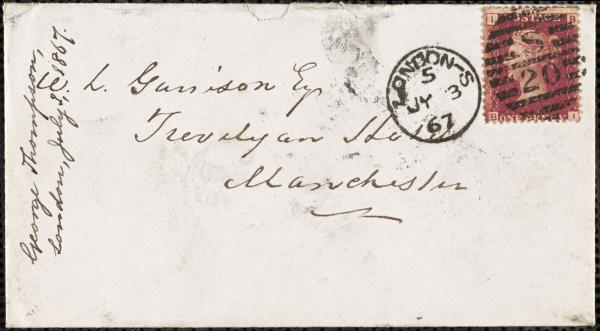 W. L. Garrison Esq
Trevelyan Hotel
Manchester
George Thompson,
London, July 3, 1867.
LONDON-S
5
JY 3
67
S
20
I B
POSTAGE
B I